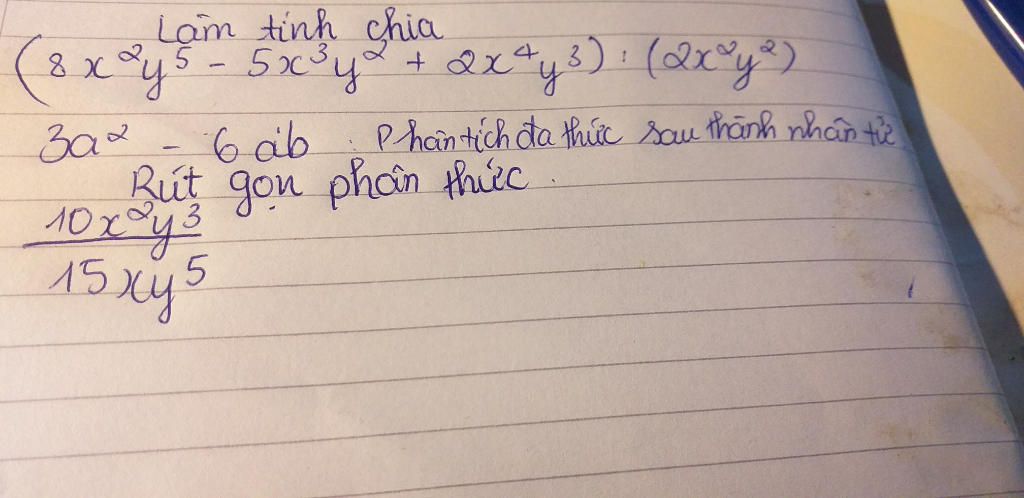 Làm tính chia
(8x²y⁵ - 5x³y² + 2x⁴y³) : (2x²y²)
3a² - 6ab : Phân tích đa thức sau thành nhân tử
Rút gọn phân thức.
10x²y³
15xy⁵